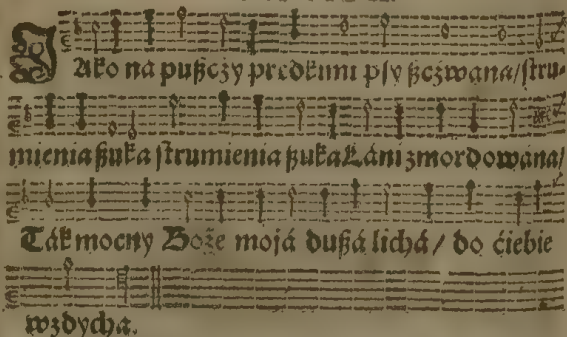 JAko na pußczy prędkimi psy ßczwana/ stru-
mienia ßuka strumienia ßuka Láni zmordowána/
Ták mocny Boże mojá dußá lichá/ do ćiebie
wzdycha.